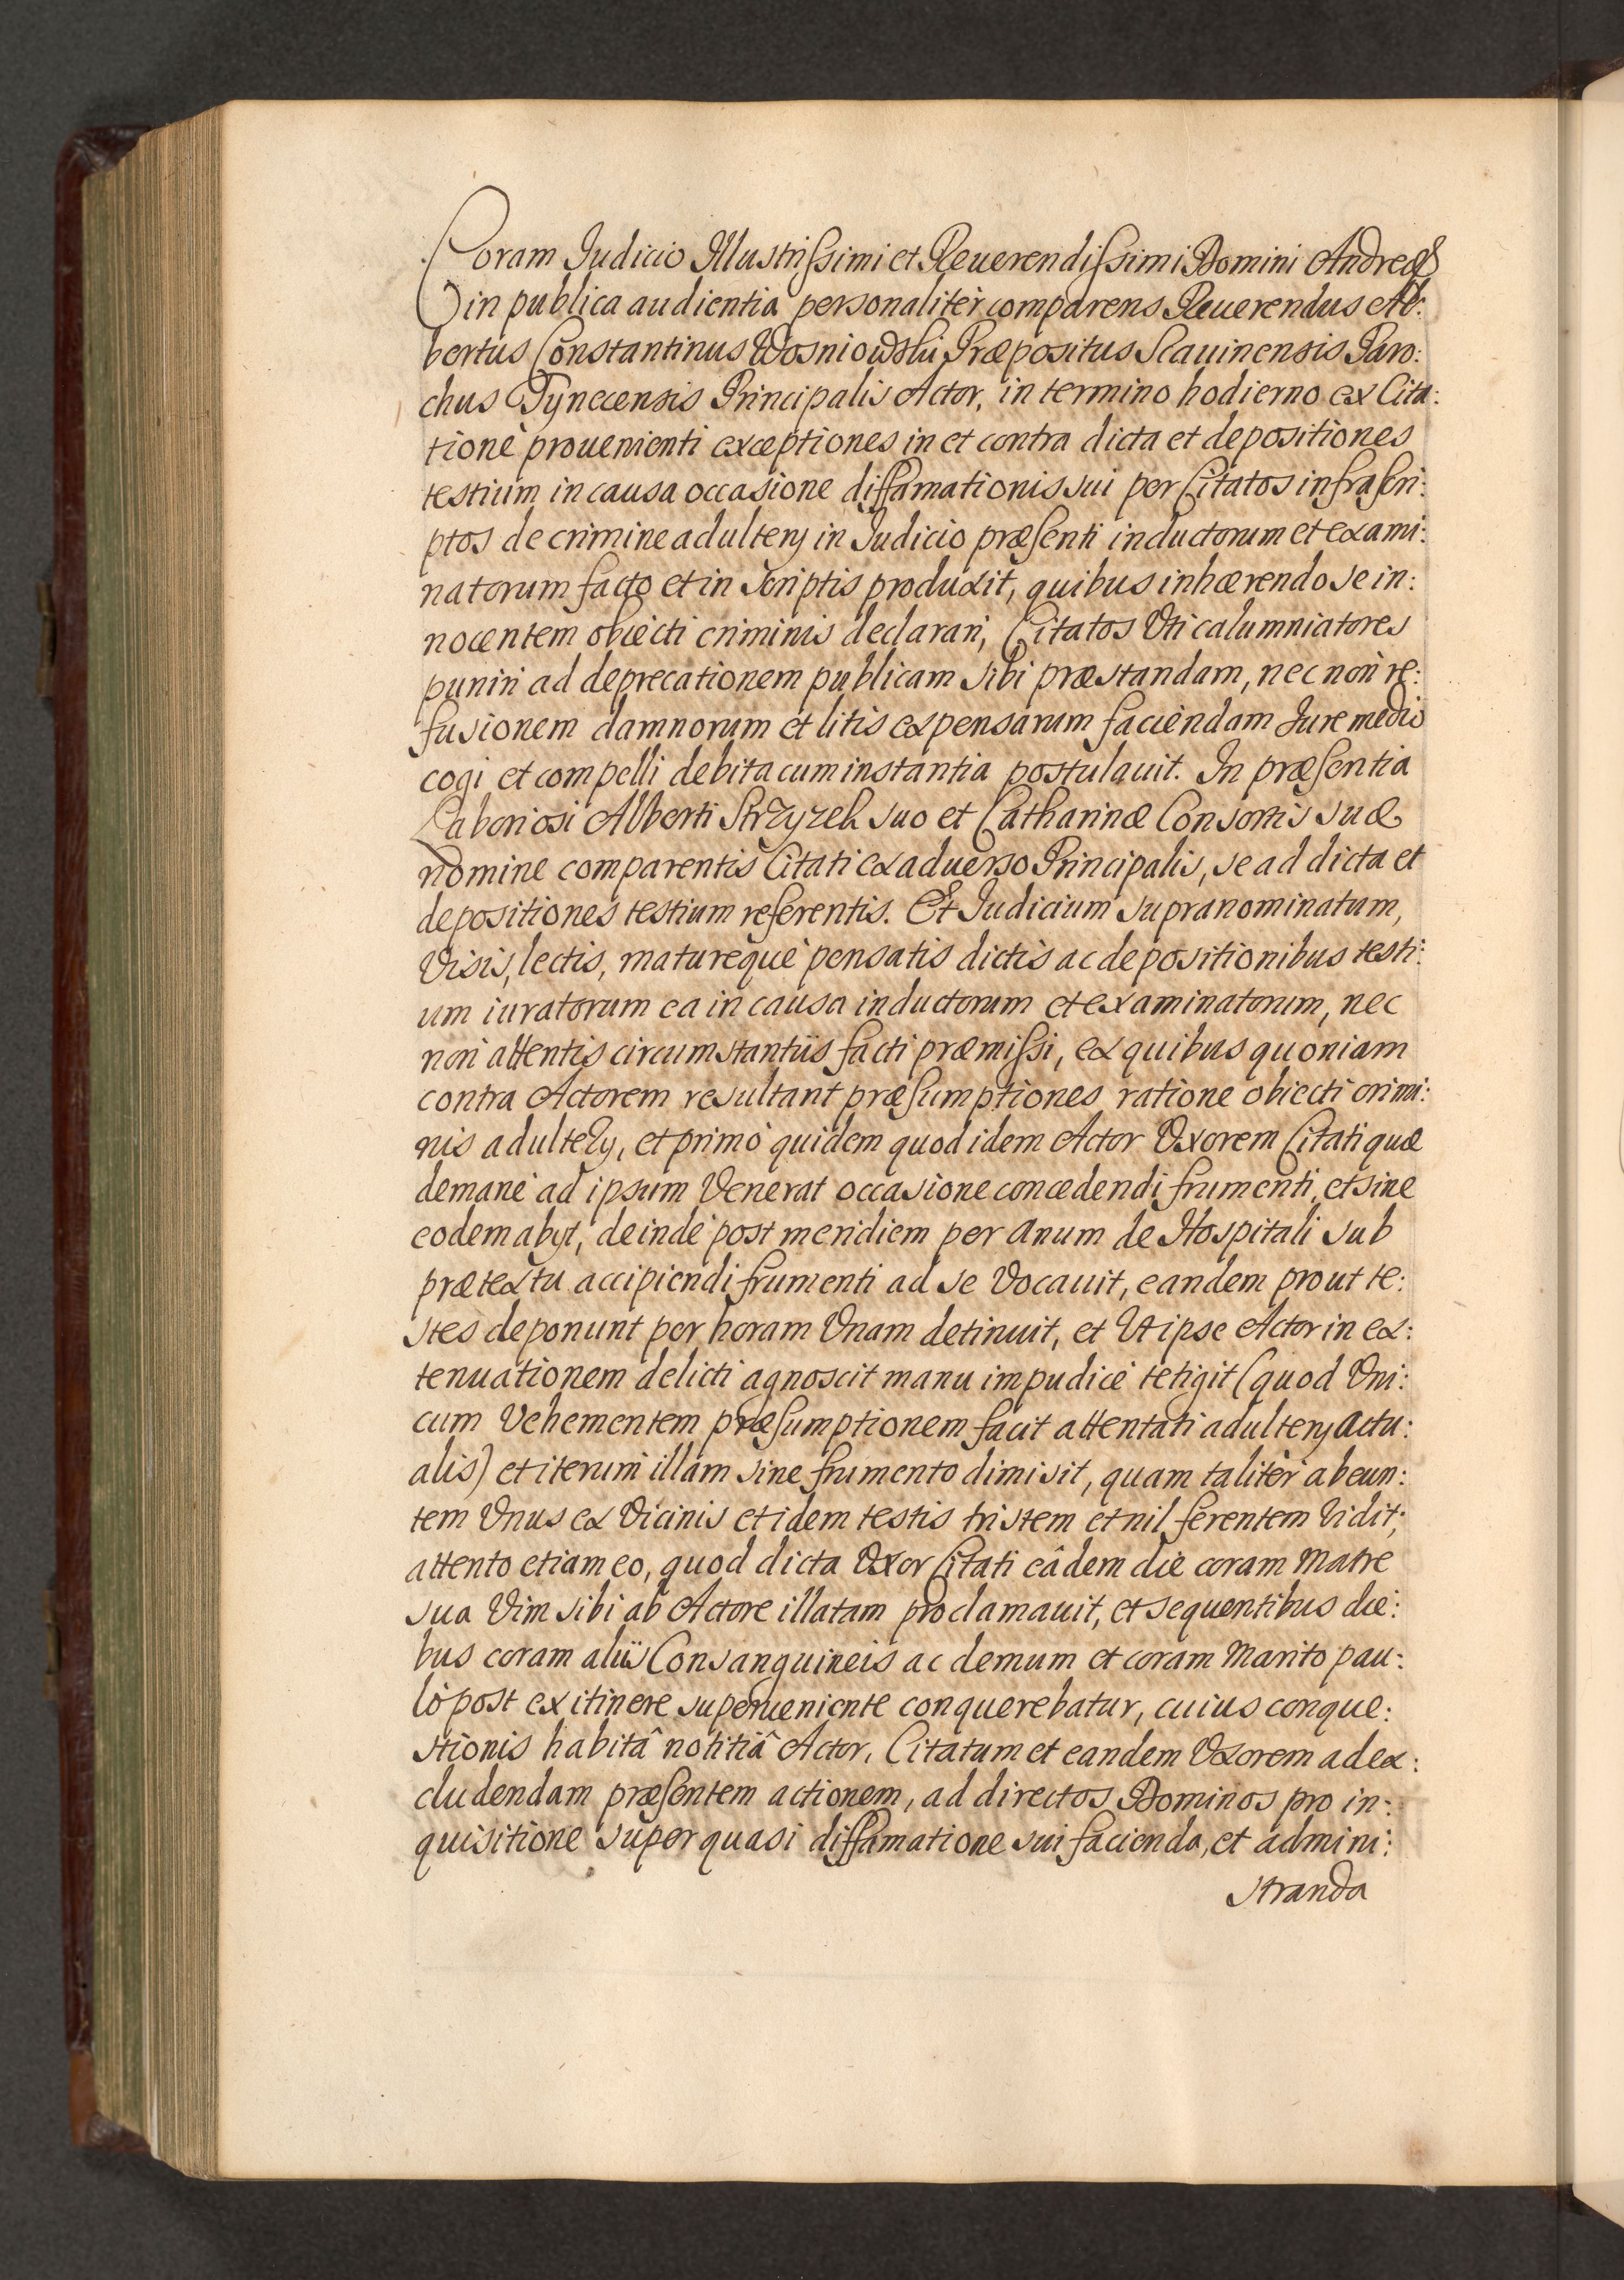 Coram Judicio Illustrissimi et Reuerendissimi Domini Andreæ
in publica audientia personalitèr comparens Reuerendus Al:
bertus Constantinus Wosniowski Præpositus Scauinensis Paro:
chus Tynecensis Principalis Actor, in termino hodierno ex Cita:
tionè prouenienti exceptiones in et contra dicta et depositiones
testium in causa occasione diffamationis sui per Citatos infrascri:
ptos de crimine adulterij in Judicio præsenti inductorum et exami:
natorum facto et in scriptis produxit, quibus inhærendo se in:
nocentem obiecti criminis declarari, Citatos Vti calumniatores
puniri ad deprecationem publicam sibi præstandam, nec non re:
fusionem damnorum et litis expensarum faciendam Jure medio
cogi et compelli debita cum instantia postulauit. In præsentia
Laboriosi Alberti Strzyzek suo et Catharinæ Consortis suæ
nomine comparentis Citati ex aduerso Principalis, se ad dicta et
depositiones testium referentis. Et Judicium supranominatum,
Visis, lectis, maturequè pensatis dictis ac depositionibus testi:
um iuratorum ea in causa inductorum et examinatorum, nec
non attentis circumstantiis facti præmissi, ex quibus quoniam
contra Actorem resultant præsumptiones ratione obiecti crimi:
nis adulterij, et primò quidem quod idem Actor Vxorem Citati quæ
demanè ad ipsum Venerat occasione concedendi frumenti, et sine
eodem abijt, deindè post meridiem per Anum de Hospitali sub
prætextu accipiendi frumenti ad se Vocauit, eandem prout te:
stes deponunt per horam Vnam detinuit, et Vt ipse Actor in ex:
tenuationem delicti agnoscit manu impudicè tetigit (quod Vni:
cum Vehementem præsumptionem facit attentati adulterij actu:
alis) et iterum illam sine frumento dimisit, quam talitèr abeun:
tem Vnus ex Vicinis et idem testis tristem et nil ferentem Vidit;
attento etiam eo, quod dicta Vxor Citati eâdem die coram Matre
sua Vim sibi ab Actore illatam proclamauit, et sequentibus die:
bus coram aliis Consanguineis ac demum et coram Marito pau:
lò post ex itinere superueniente conquerebatur, cuius conque:
stionis habitâ notitiâ Actor, Citatum et eandem Vxorem ad ex:
cludendam præsentem actionem, ad directos Dominos pro in:
quisitione super quasi diffamatione sui facienda, et admini:
stranda